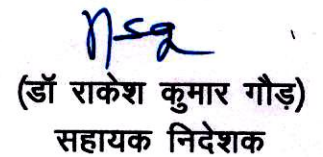 (डॉ राकेश कुमार गौड़)
सहायक निदेशक